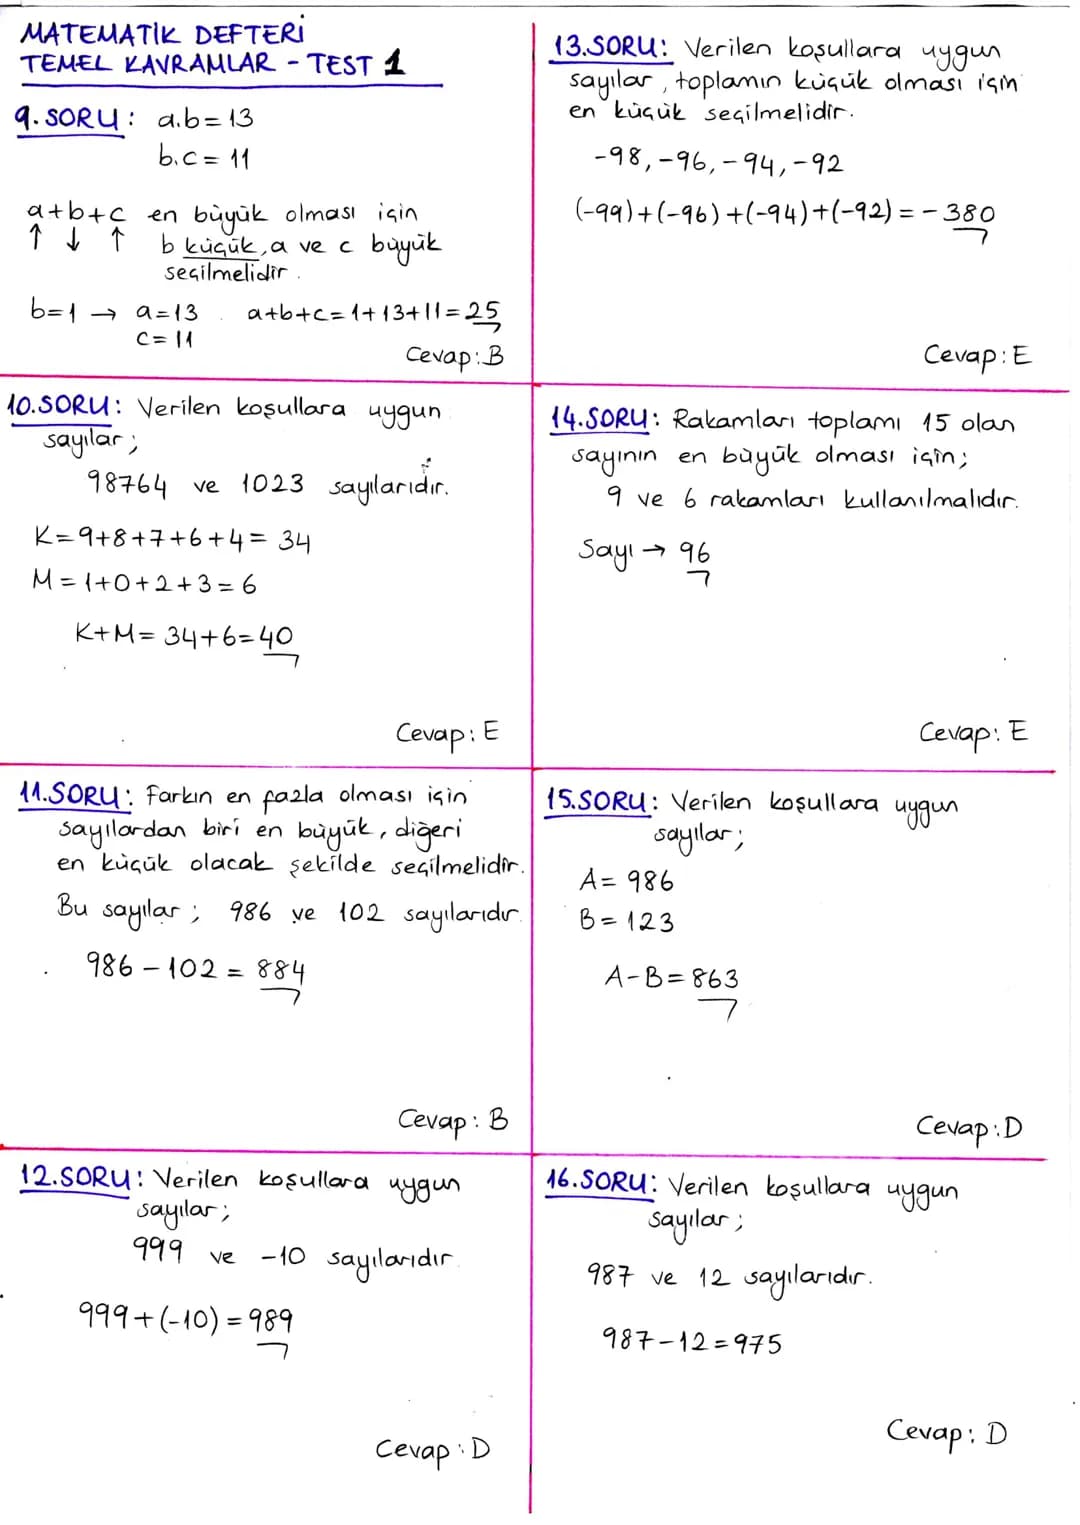 MATEMATİK DEFTERİ
TEMEL KAVRAMLAR - TEST 1
9. SORU: a.b=13
b.c = 11
a+b+c en büyük olması için
↑ ↓ ↑ b küçük, a ve c büyük
seçilmelidir.
b=1 → a=13 a+b+c=1+13+11=25
c=11
Cevap: B
10. SORU: Verilen koşullara uygun
sayılar;
98764 ve 1023 sayılarıdır.
K=9+8+7+6+4= 34
M=1+0+2+3=6
K+M= 34+6=40
Cevap: E
11. SORU: Farkın en fazla olması için
sayılardan biri en büyük, diğeri
en küçük olacak şekilde seçilmelidir.
Bu sayılar; 986 ve 102 sayılarıdır.
986 - 102 = 884
Cevap: B
12. SORU: Verilen koşullara uygun
sayılar;
999 ve -10 sayılarıdır.
999+(-10) = 989
Cevap: D
13. SORU: Verilen koşullara uygun
sayılar, toplamın küçük olması için
en küçük seçilmelidir.
-98, -96, -94, -92
(-99)+(-96)+(-94)+(-92) = -380
Cevap: E
14. SORU: Rakamları toplamı 15 olan
sayının en büyük olması için;
9 ve 6 rakamları kullanılmalıdır.
Sayı → 96
Cevap: E
15. SORU: Verilen koşullara uygun
sayılar;
A= 986
B= 123
A-B= 863
Cevap: D
16. SORU: Verilen koşullara uygun
sayılar;
987 ve 12 sayılarıdır.
987-12=975
Cevap: D